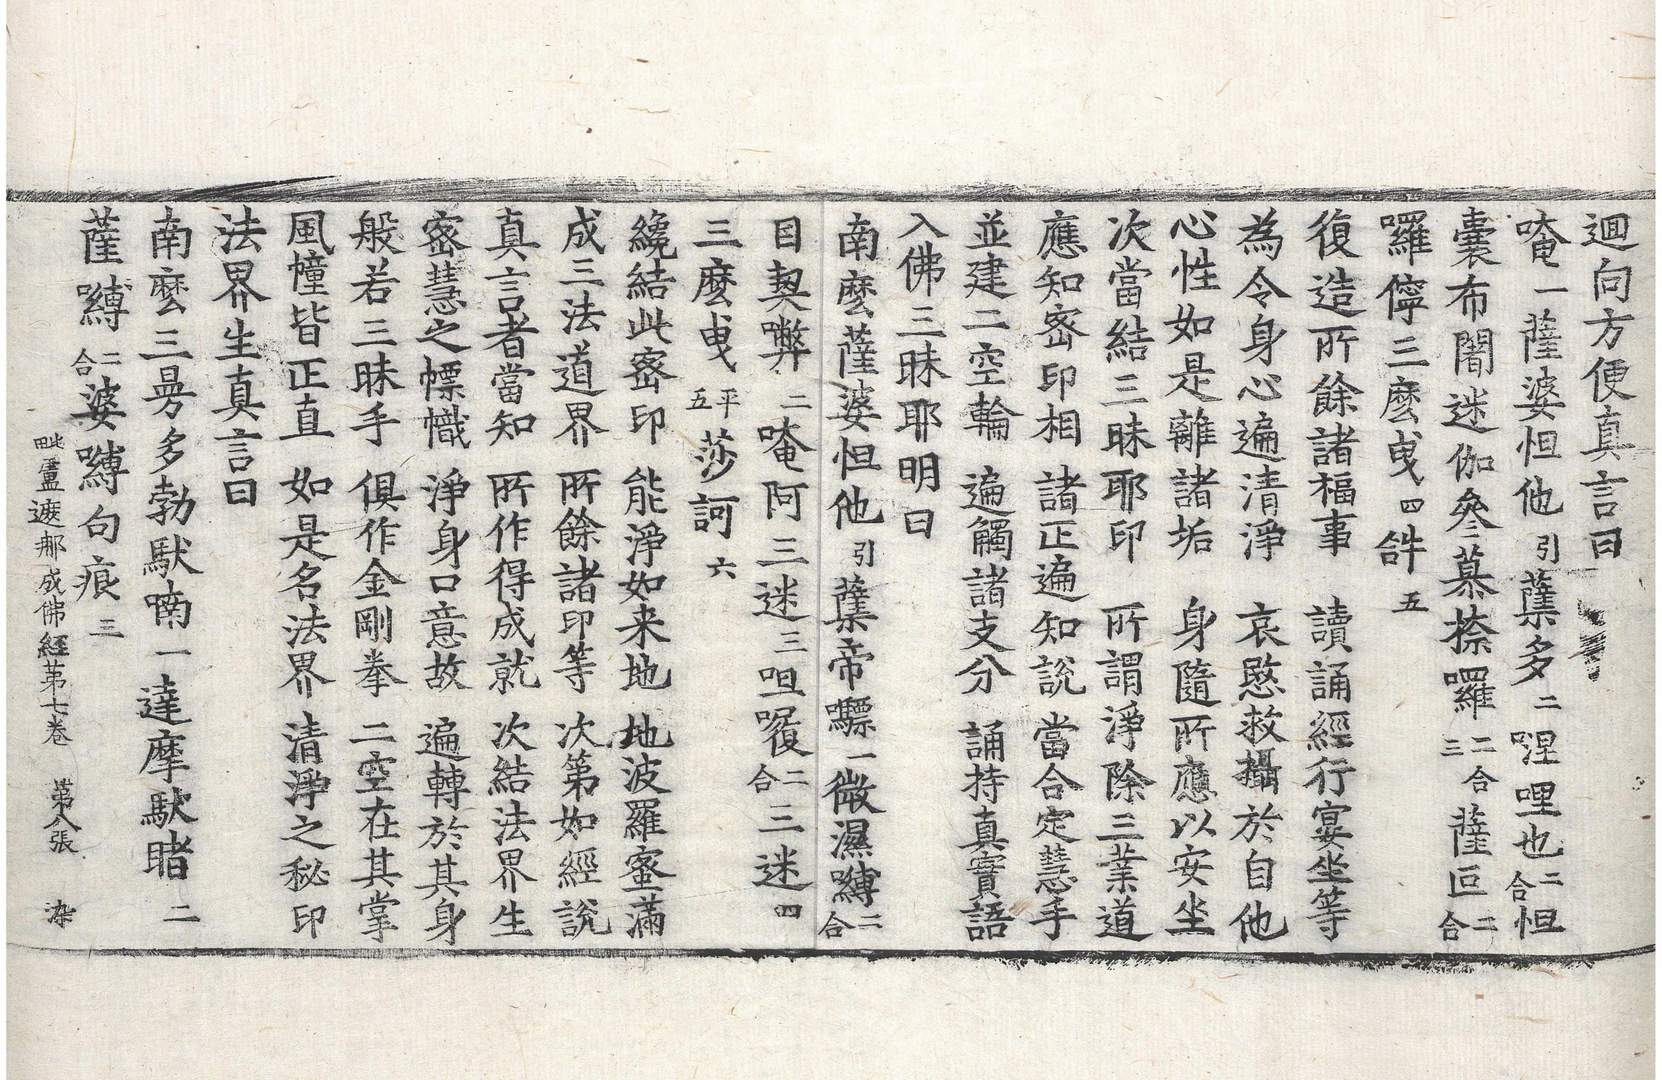 迴向方便真言曰
唵一薩婆怛他引蘖多二涅哩也二合怛
囊布闍迷伽參慕捺囉二合三薩叵二合
囉儜三麼曳四吽五
復造所餘諸福事　讀誦經行宴坐等
為令身心遍清淨　哀愍救攝於自他
心性如是離諸垢　身隨所應以安坐
次當結三昧耶印　所謂淨除三業道
應知密印相　諸正遍知說　當合定慧手
並建二空輪　遍觸諸支分　誦持真實語
入佛三昧耶明曰
南麼薩婆怛他引蘖帝驃一微濕嚩二合
目契弊二唵阿三迷三呾㘑二合三迷四
三麼曳平五莎訶六
纔結此密印　能淨如来地　地波羅蜜滿
成三法道界　所餘諸印等　次第如經說
真言者當知　所作得成就　次結法界生
密慧之幖幟　淨身口意故　遍轉於其身
般若三昧手　俱作金剛拳　二空在其掌
風幢皆正直　如是名法界　清淨之秘印
法界生真言曰
南麼三曼多勃馱喃一達摩馱睹二
薩嚩二合婆嚩句痕三
毗盧遮那成佛經第七卷　第八張　染